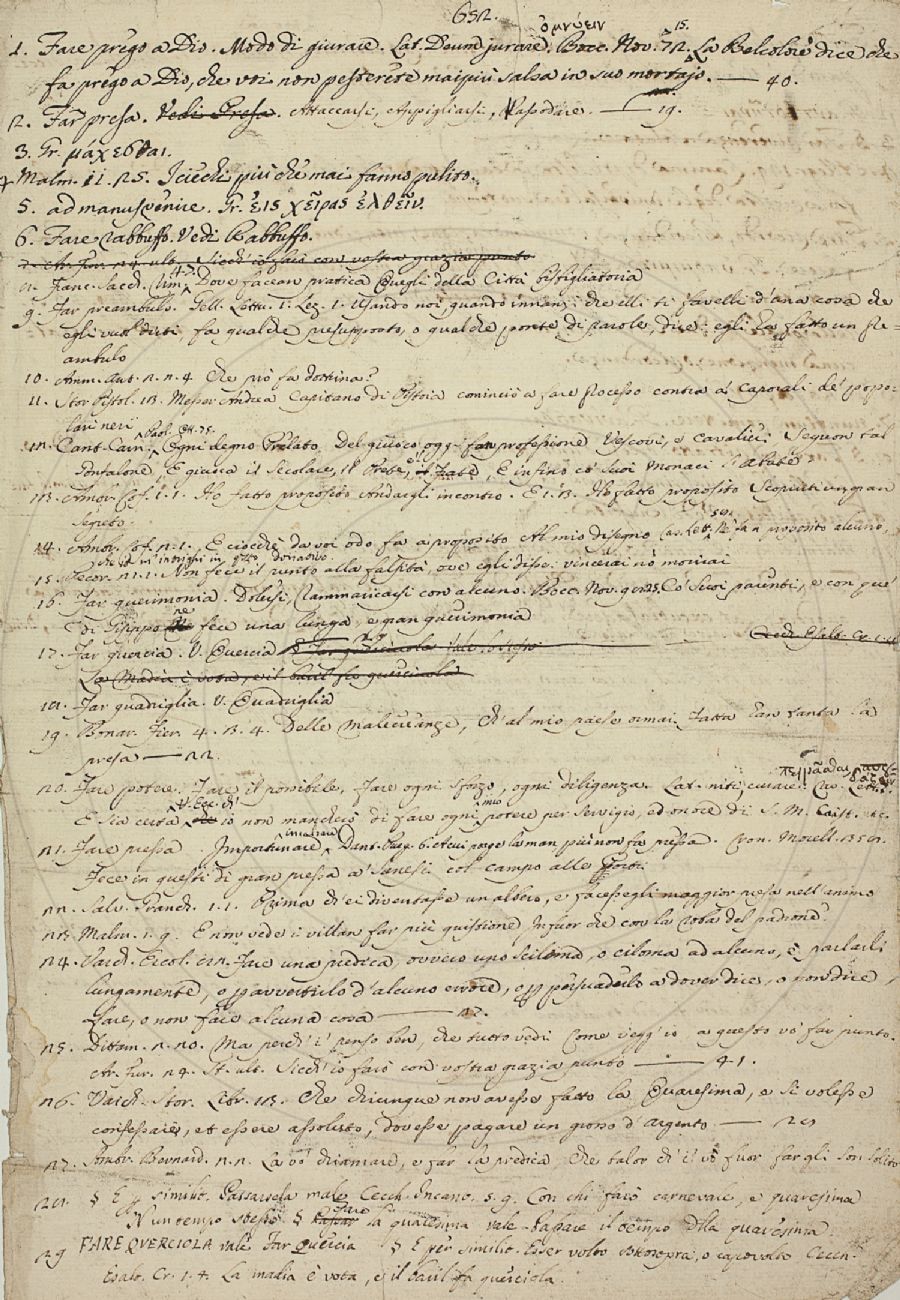 652.
ὀμνύειν 15.
1. Fare prego a Dio. Modo di giurare. Lat. Deum jurare. Bocc. Nov. 72. La Belcolore dice che
fa prego a Dio, che voi non pesterete mai più salsa in suo mortajo. — 40.
2. Far presa. Vedi Presa. Attaccarsi, Appigliarsi, Rassodare. — 19.
3. Gr. μάχεσθαι.
4. Malm. 11. 25. I ciechi più che mai fanno pulito.
5. ad manus venire. Gr. εἰς χεῖρας ἐλθεῖν.
6. Fare rabbuffo. Vedi Rabbuffo.
7. Ar. Fur. 24. ult. Sicch' io farò con vostra grazia punto
8. Franc. Sacch. rim. 47. Dove faccan pratica Quegli della Città
9. Far preambulo. Gell. Lettu. 1. Lez. 1. Usando noi, quando innanzi che ti favelli d'una cosa che
egli vuol dirti, fa qualche presupposto, o qualche ponte di parole, dire: egli ha fatto un pre-
ambulo
10. Amm. Ant. 2. 2. 4. Che prò fa dottrina?
11. Stor. Pistol. 13. Messer Andrea Capitano di Pistoia cominciò a fare processo contra a' Caporali de' popo-
lari neri
12. Cant. Carn. Paol. Ott. 75. Ogni degno Prelato Del giuoco oggi fan professione Vescovi, e Cavalieri Seguon tal
Gonfalone, E giuoca il Secolare, il Prete, e il Frate, E infino co' suoi Monaci l'abate
13. Ambr. Cof. 1. 1. Ho fatto proposito Andargli incontro. E 1. 3. Ho fatto proposito Scoprirti un gran
segreto.
14. Ambr. Cof. 2. 1. E ciocchè da voi odo fa a proposito Al mio disegno Cas. Lett. 72. fa a proposito alcuno,
che si intrighi in
15. Pecor. 21. 1. Non fece il punto alla falsità, ove egli disse: vincerai nò morirai
16. Far querimonia. Dolersi, Rammaricarsi con alcuno. Bocc. Nov. 98. 25. Co' suoi parenti, e con que'
di Gisippo ne fece una lunga, e gran querimonia
17. Far quercia. V. Quercia
Vedi Esalt. Cr. 1. 4
La Madia è vota, e il baril fa querciola
18. Far quadriglia. V. Quadriglia
19. Bonar. Fier. 4. 3. 4. Delle malecreanze, Ch' al mio paese ormai fatta han tanta la
presa — 22.
20. Far potere. Fare il possibile, fare ogni sforzo, ogni diligenza. Lat. niti, curare. Cas. Lett.
E sia certa V. Ecc. ch' io non mancherò di fare ogni mio potere per servigio, ed onore di S. M. Crist.
21. Fare pressa. Importunare, incalzare. Dant. Purg. 6. A cui porge la man più non fa pressa. Cron. Morell. 356.
Fece in questi dì gran pressa a' Sanesi col campo alle Porti.
22. Salv. Granch. 1. 1. Prima ch'ei diventasse un albero, e facessegli maggior presa nell'animo
23. Malm. 1. 9. E non vede i villan far più quistione In fuor che con la roba del padrone.
24. Varch. Ercol. 62. Fare una predica, ovvero uno sciloma, o ciloma ad alcuno, è parlarli
lungamente, o per avvertirlo d'alcuno errore, o per persuaderlo a dover dire, o non dire,
fare, o non fare alcuna cosa — 27.
25. Dittam. 2. 20. Ma perch' i' penso ben, che tutto vedi Come vegg'io a questo vo' far punto.
Ar. Fur. 24. St. ult. Sicch' io farò con vostra grazia punto — 41.
26. Varch. Stor. Libr. 13. Che chiunque non avesse fatto la Quaresima, e si volesse
confessare, et essere assoluto, dovesse pagare un grosso d'argento. — 28
27. Ambr. Bernard. 2. 2. La vo' chiamare, e far la predica, Che talor ch' i' vo fuor far gli son solito
28. § E per similit. Passarsela male Cecch. Incant. 5. 9. Con chi farò carnevale, e quaresima
N'un tempo stesso § fare la quaresima vale passare il tempo della quaresima.
29. FARE QUERCIOLA vale Far Quercia § E per similit. Esser volto sottosopra, o capovolto Cecch.
Esalt. Cr. 1. 4. La madia è vota, e il baril fa querciola.